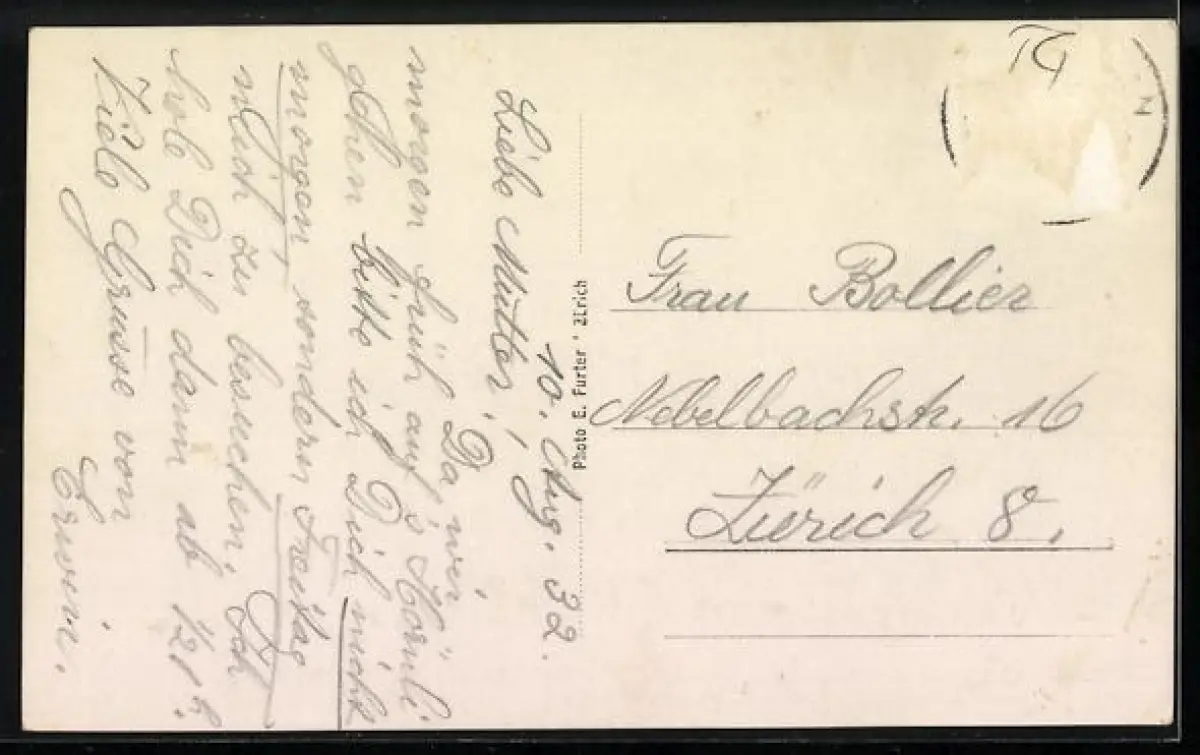 10. Aug. 32.
Liebe Mutter, Da wir
morgen früh auf's Hörnli
gehen bitte ich Dich nicht
morgen, sondern Freitag
mich zu besuchen. Ich
hole Dich dann ab
Viele Grüsse von
Erwin.
Photo E. Furter * Zürich
Frau Bollier
Nebelbachstr. 16
Zürich 8.